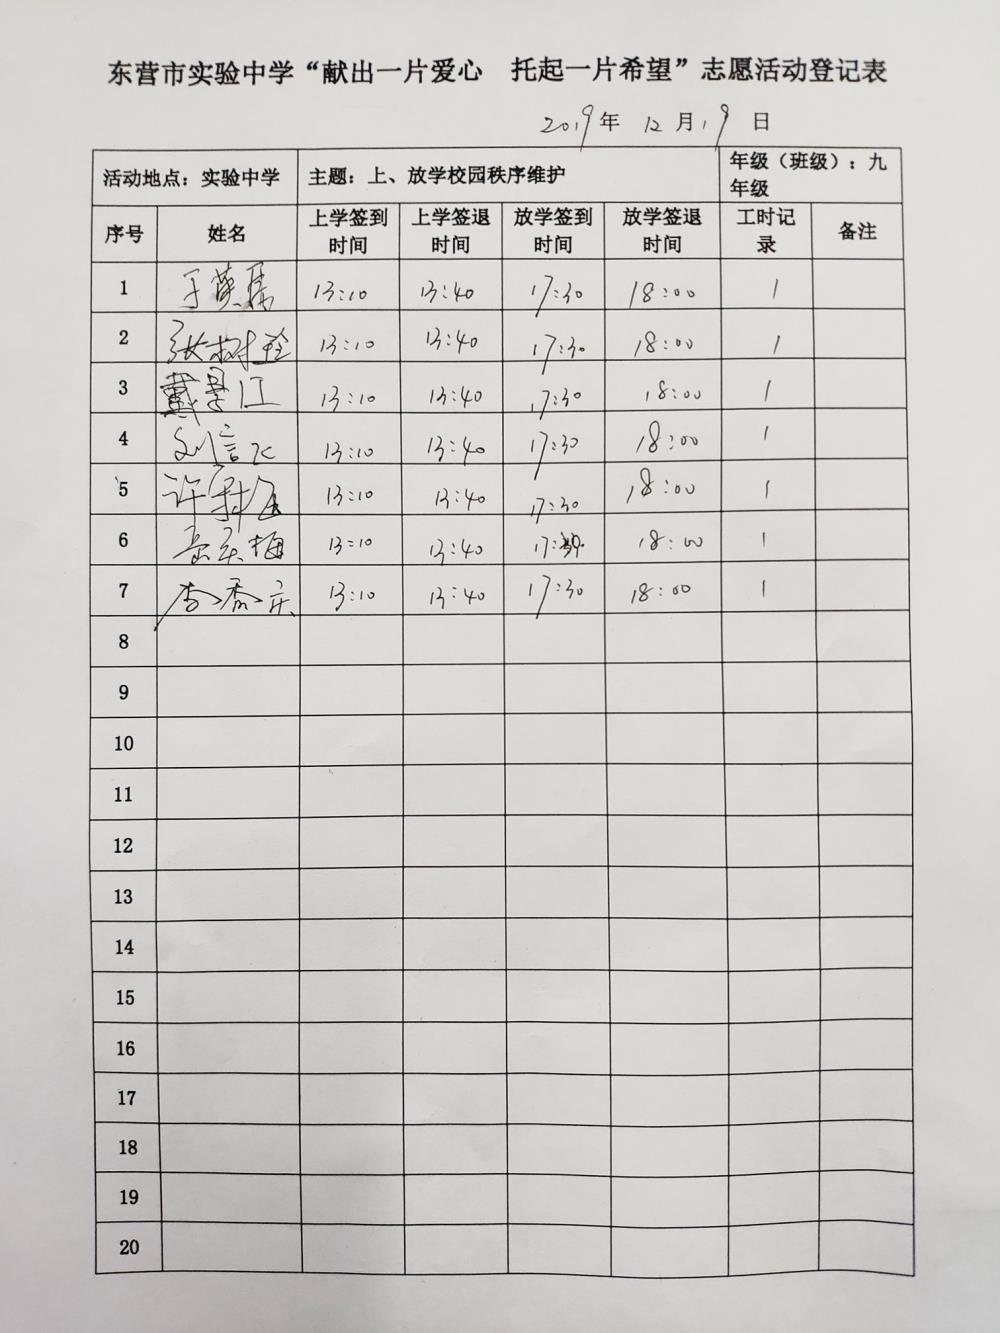 东营市实验中学“献出一片爱心 托起一片希望”志愿活动登记表
2019年 12月19日
活动地点：实验中学 主题：上、放学校园秩序维护 年级（班级）：九年级
序号 姓名 上学签到时间 上学签退时间 放学签到时间 放学签退时间 工时记录 备注
1 13:10 13:40 17:30 18:00 1
2 张树铨 13:10 13:40 17:30 18:00 1
3 戴景江 13:10 13:40 17:30 18:00 1
4 刘信 13:10 13:40 17:30 18:00 1
5 许 13:10 13:40 17:30 18:00 1
6 梅 13:10 13:40 17:30 18:00 1
7 李香庆 13:10 13:40 17:30 18:00 1
8
9
10
11
12
13
14
15
16
17
18
19
20